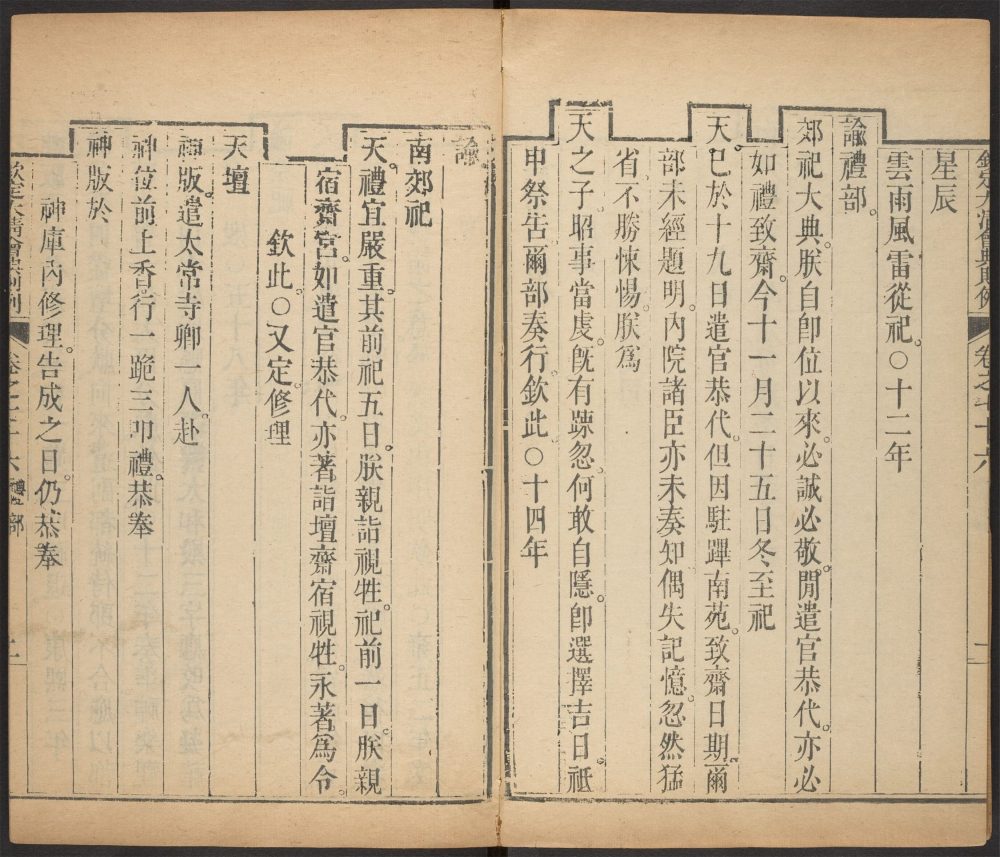 欽定大清會典則例 卷之七十六 二
星辰
雲雨風雷從祀○十二年
諭禮部。
郊祀大典。朕自卽位以來。必誠必敬。閒遣官恭代。亦必
如禮致齋。今十一月二十五日冬至祀
天。已於十九日遣官恭代。但因駐蹕南苑。致齋日期。爾
部未經題明。內院諸臣亦未奏知。偶失記憶。忽然猛
省。不勝悚惕。朕爲
天之子。昭事當虔。旣有疎忽。何敢自隱。卽選擇吉日。祗
申祭告。爾部奏行。欽此○十四年
諭
南郊祀
天。禮宜嚴重。其前祀五日。朕親詣視牲。祀前一日。朕親
宿齋宮。如遣官恭代。亦著詣壇齋宿視牲。永著爲令。
欽此○又定。修理
天壇
神版。遣太常寺卿一人。赴
神位前上香。行一跪三叩禮。恭奉
神版於
神庫內。修理告成之日。仍恭奉
欽定大清會典則例 卷之七十六 禮部